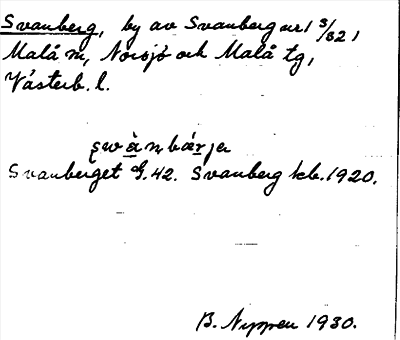 Svanberg, by av Svanberg nr 1 3/82,
Malå sn, Norsjö och Malå tg,
Västerb. l.
swànbárja
Svanberget G.42. Svanberg kb. 1920.
B. Nyppen 1930.